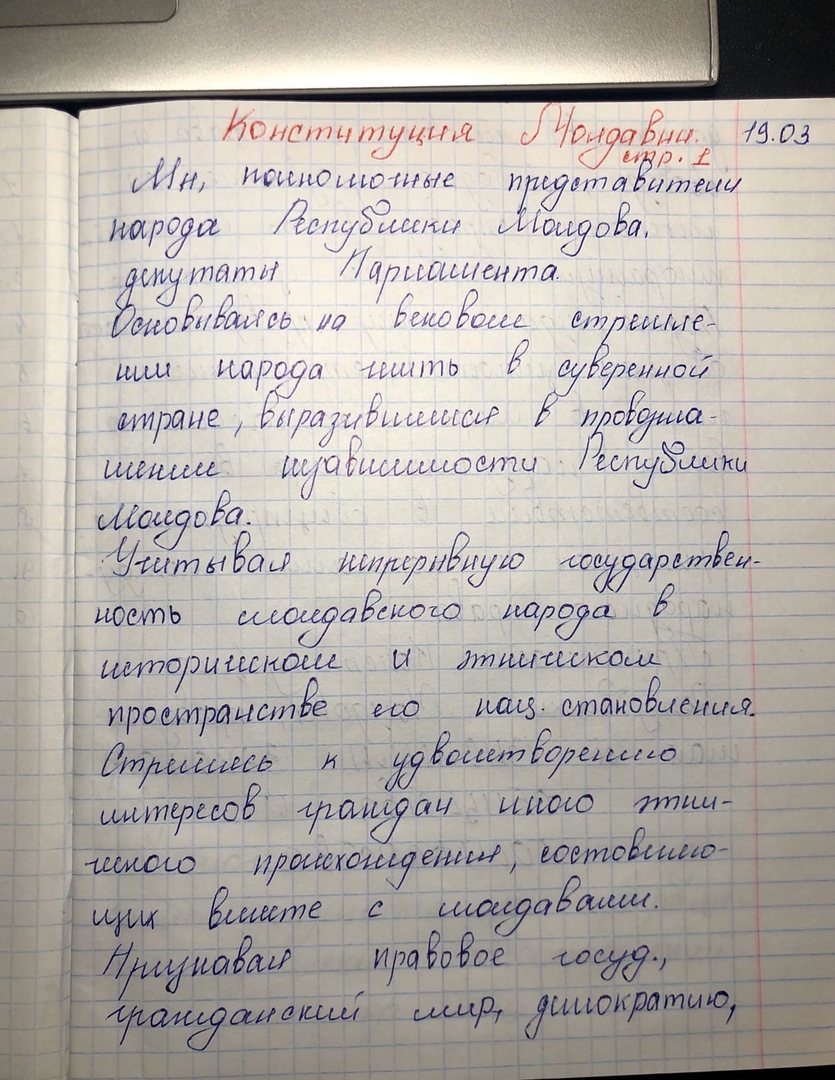 Конституция Молдавии. 19.03
стр. 1
Мы, полномочные представители
народа Республики Молдова,
депутаты Парламента.
Основываясь на вековом стремле-
нии народа жить в суверенной
стране, выразившимся в провозгла-
шении независимости Республики
Молдова.
Учитывая непрерывную государствен-
ность молдавского народа в
историческом и этническом
пространстве его нац. становления.
Стремясь к удволетворению
интересов граждан иного этни-
ческого происхождения, состовляю-
щих вместе с молдавами.
Признавая правовое госуд.,
гражданский мир, демократию,